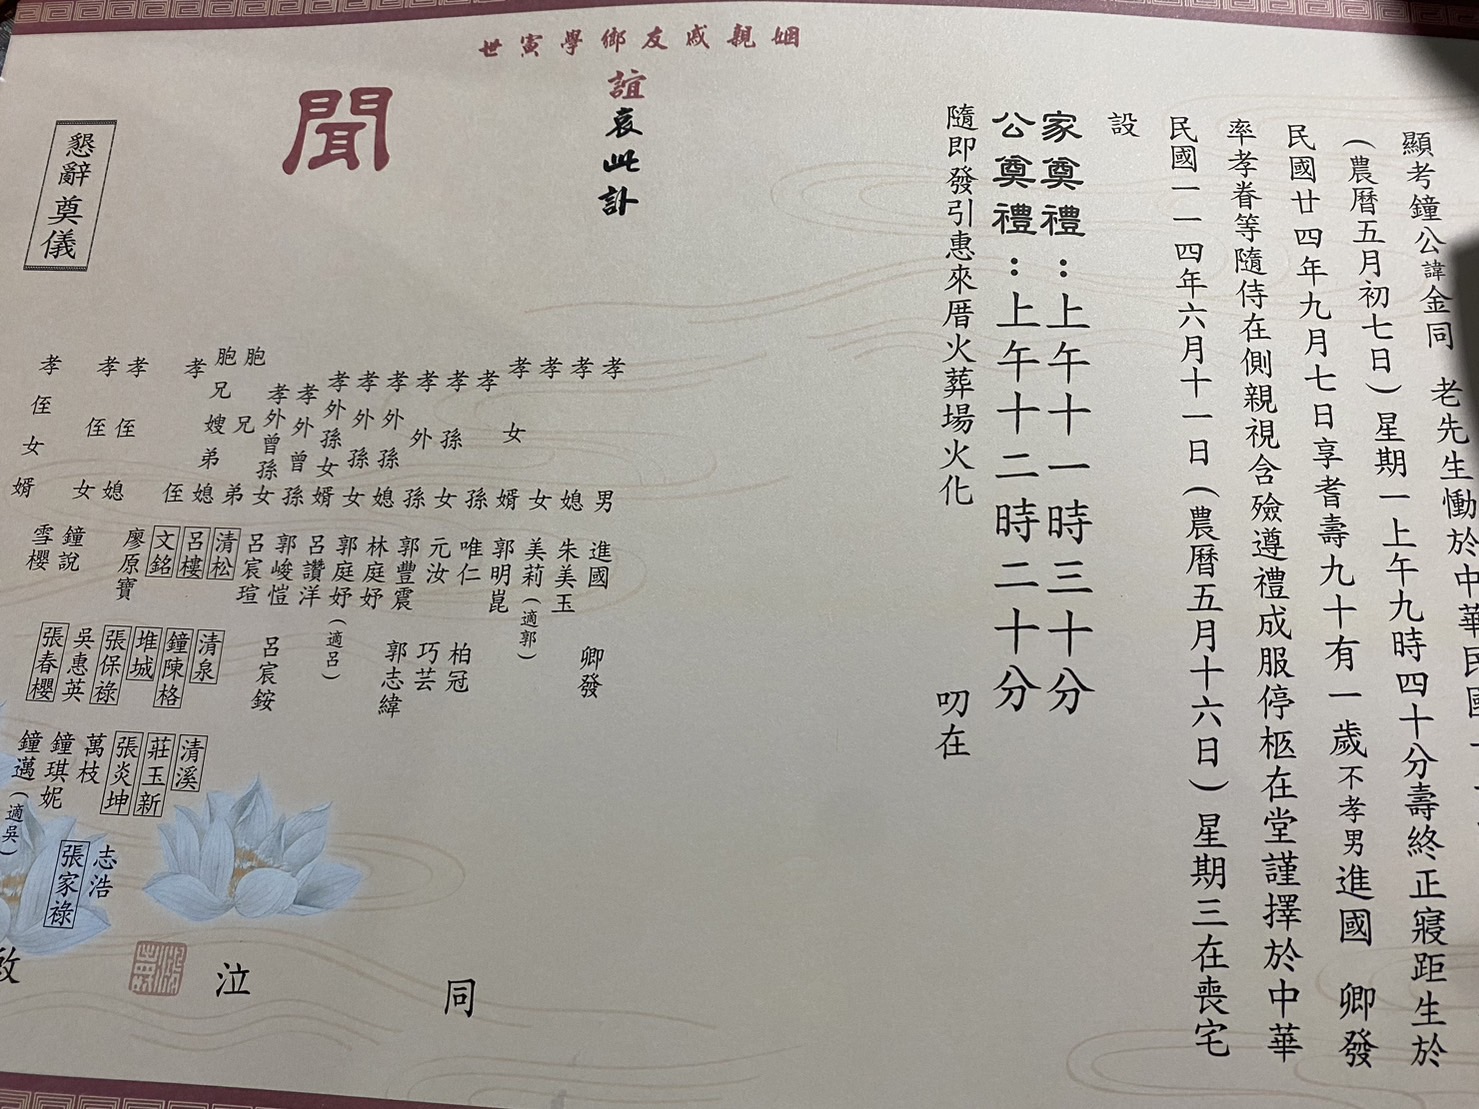 顯考鐘公諱金同　老先生慟於中華民國
(農曆五月初七日)星期一上午九時四十分壽終正寢距生於
民國廿四年九月七日享耆壽九十有一歲不孝男進國　卿發
率孝眷等隨侍在側親視含殮遵禮成服停柩在堂謹擇於中華
民國一一四年六月十一日(農曆五月十六日)星期三在喪宅
設
家奠禮：上午十一時三十分
公奠禮：上午十二時二十分
隨即發引惠來厝火葬場火化　叨在
姻親戚友鄉學寅世
誼哀此訃
聞
孝男　進國　卿發
孝媳　朱美玉
孝女　美莉(適郭)
孝女婿　郭明崑
孝孫　唯仁　柏冠
孝孫女　元汝　巧芸
孝外孫　郭豐震　郭志緯
孝外孫媳　林庭妤
孝外孫女　郭庭妤(適呂)
孝外孫女婿　呂讚洋
孝外曾孫　郭峻愷
孝外曾孫女　呂宸瑄　呂宸銨
胞兄弟　清松　清泉　清溪
胞兄嫂弟媳　呂樓　鐘陳格　莊玉新
孝侄　文銘　堆城　張炎坤　志浩
廖原寶　張保祿　萬枝　張家祿
孝侄媳　吳惠英　鐘琪妮
孝侄女　鐘說　張春櫻　鐘邁(適吳)
孝侄女婿　雪櫻
同
泣
啟
懇辭奠儀